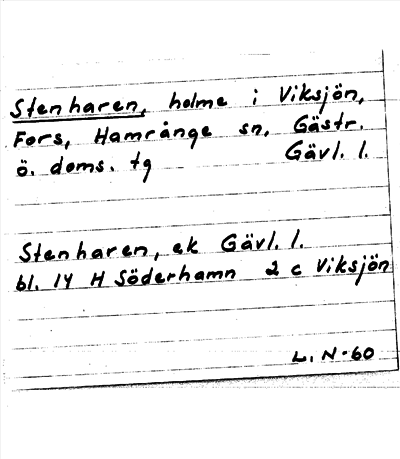 Stenharen, holme i Viksjön,
Fors, Hamrånge sn, Gästr.
ö. doms. tg Gävl. l.
Stenharen, ek Gävl. l.
bl. 14 H Söderhamn 2 c Viksjön
L. N-60